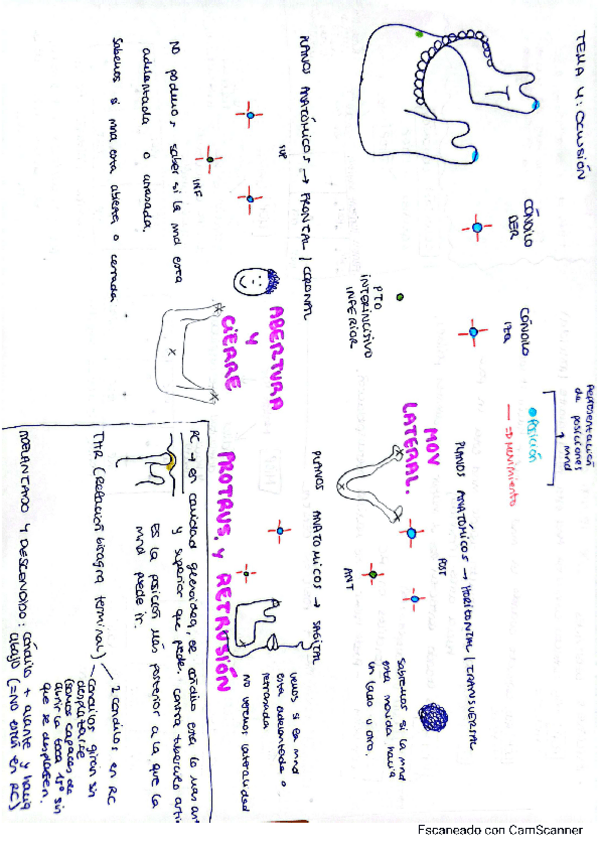 TEMA 4: OCLUSIÓN
CÓNDILO
DER
CÓNDILO
IZQ
PTO
INTERINCISIVO
INFERIOR
Representación
de posiciones
mnd
POSICIÓN
=> MOVIMIENTO
PLANOS ANATÓMICOS → FRONTAL / CORONAL
SUP
INF
No podemos saber si la mnd esta
adelantada o atrasada.
Sabemos si mna esta abierta o cerrada
ABERTURA
Y
CIERRE
PLANOS ANATÓMICOS → HORIZONTAL / TRANSVERSAL
MOV
LATERAL.
POST
ANT
Sabremos si la mnd
esta movida hacia
un lado u otro.
PLANOS ANATOMICOS → SAGITAL
PROTRUS. y RETRUSIÓN
vemos si la mnd
esta adelantada o
retrosada
No vemos lateralidad
RC → en cavidad glenoidea, se cóndilo esta lo mas ant
y superior que puede. contra tuberculo arti
es la posición más posterior a la que la
mnd puede ir.
TMR (Relación bisagra terminal)
2 condilos en RC
condilos giran sin
desplazarse
(somos capaces de
abrir la boca 15º sin
que se desplacen.
ADELANTADO Y DESCENDIDO: cóndilo + avante y hacia
abajo (= No están en RC)
Escaneado con CamScanner